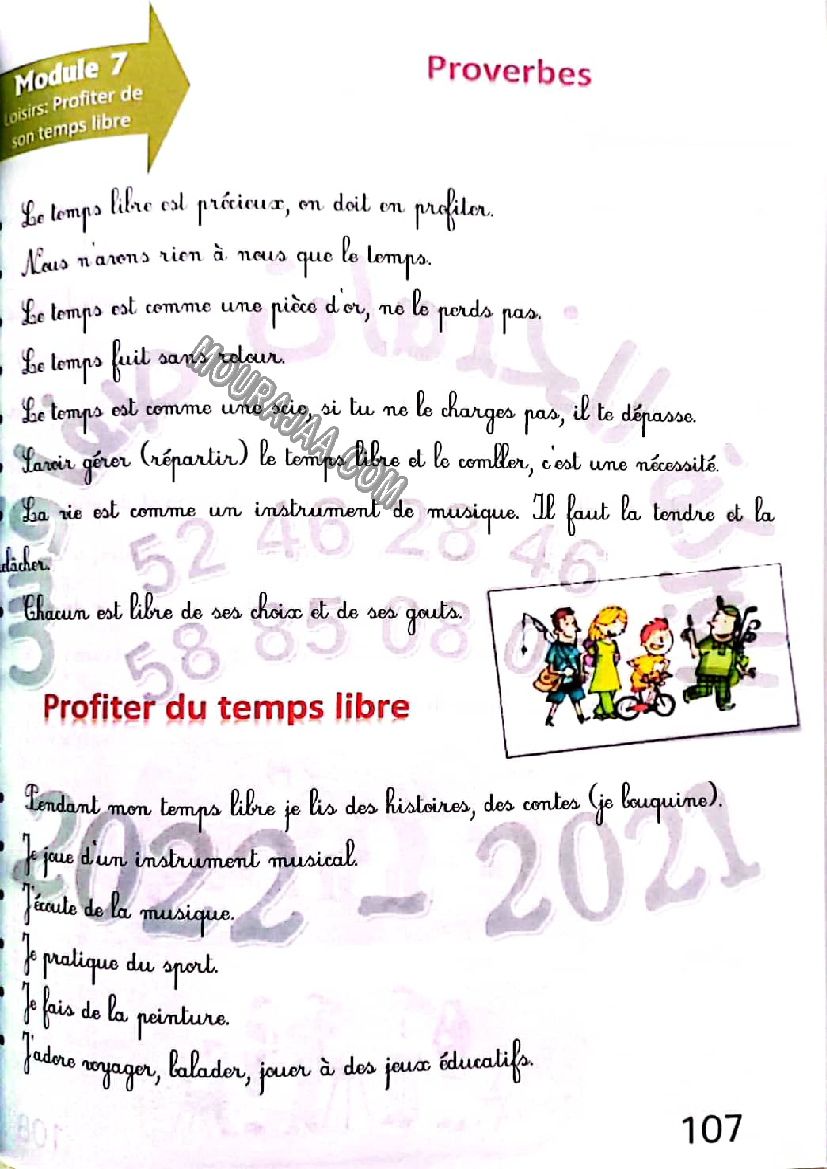 Module 7
Loisirs: Profiter de
son temps libre
Proverbes
Le temps libre est précieux, on doit en profiter.
Nous n'avons rien à nous que le temps.
Le temps est comme une pièce d'or, ne le perds pas.
Le temps fuit sans retour.
MOURAJAA.COM
Le temps est comme une scie, si tu ne le charges pas, il te dépasse.
Savoir gérer (répartir) le temps libre et le combler, c'est une nécessité.
La vie est comme un instrument de musique. Il faut la tendre et la
lâcher.
52 46 28 46
Chacun est libre de ses choix et de ses gouts.
58 85 08 0
Profiter du temps libre
Pendant mon temps libre je lis des histoires, des contes (je bouquine).
Je joue d'un instrument musical.
2022 - 2021
J'écoute de la musique.
Je pratique du sport.
Je fais de la peinture.
J'adore voyager, balader, jouer à des jeux éducatifs.
107